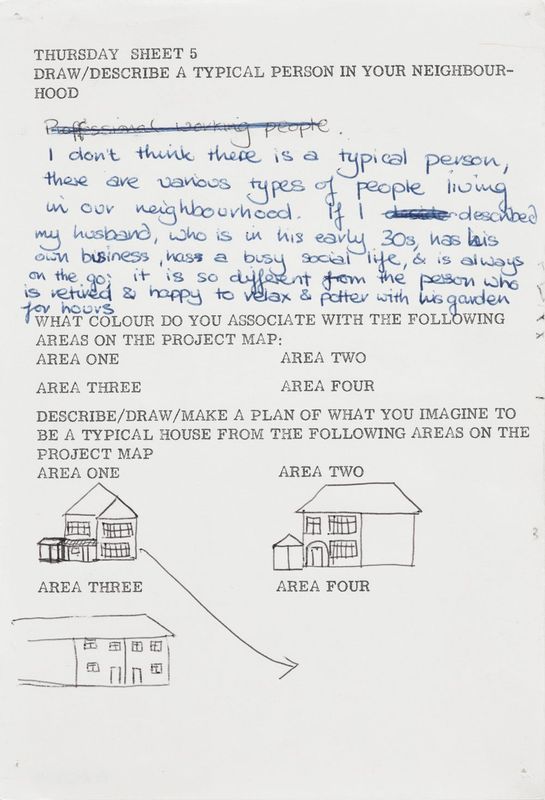 THURSDAY SHEET 5
DRAW/DESCRIBE A TYPICAL PERSON IN YOUR NEIGHBOUR-
HOOD
Professional working people.
I don't think there is a typical person,
there are various types of people living
in our neighbourhood. If I described
my husband, who is in his early 30s, has his
own business, has a busy social life, & is always
on the go; it is so different from the person who
is retired & happy to relax & potter with his garden
for hours
WHAT COLOUR DO YOU ASSOCIATE WITH THE FOLLOWING
AREAS ON THE PROJECT MAP:
AREA ONE AREA TWO
AREA THREE AREA FOUR
DESCRIBE/DRAW/MAKE A PLAN OF WHAT YOU IMAGINE TO
BE A TYPICAL HOUSE FROM THE FOLLOWING AREAS ON THE
PROJECT MAP
AREA ONE AREA TWO
AREA THREE AREA FOUR